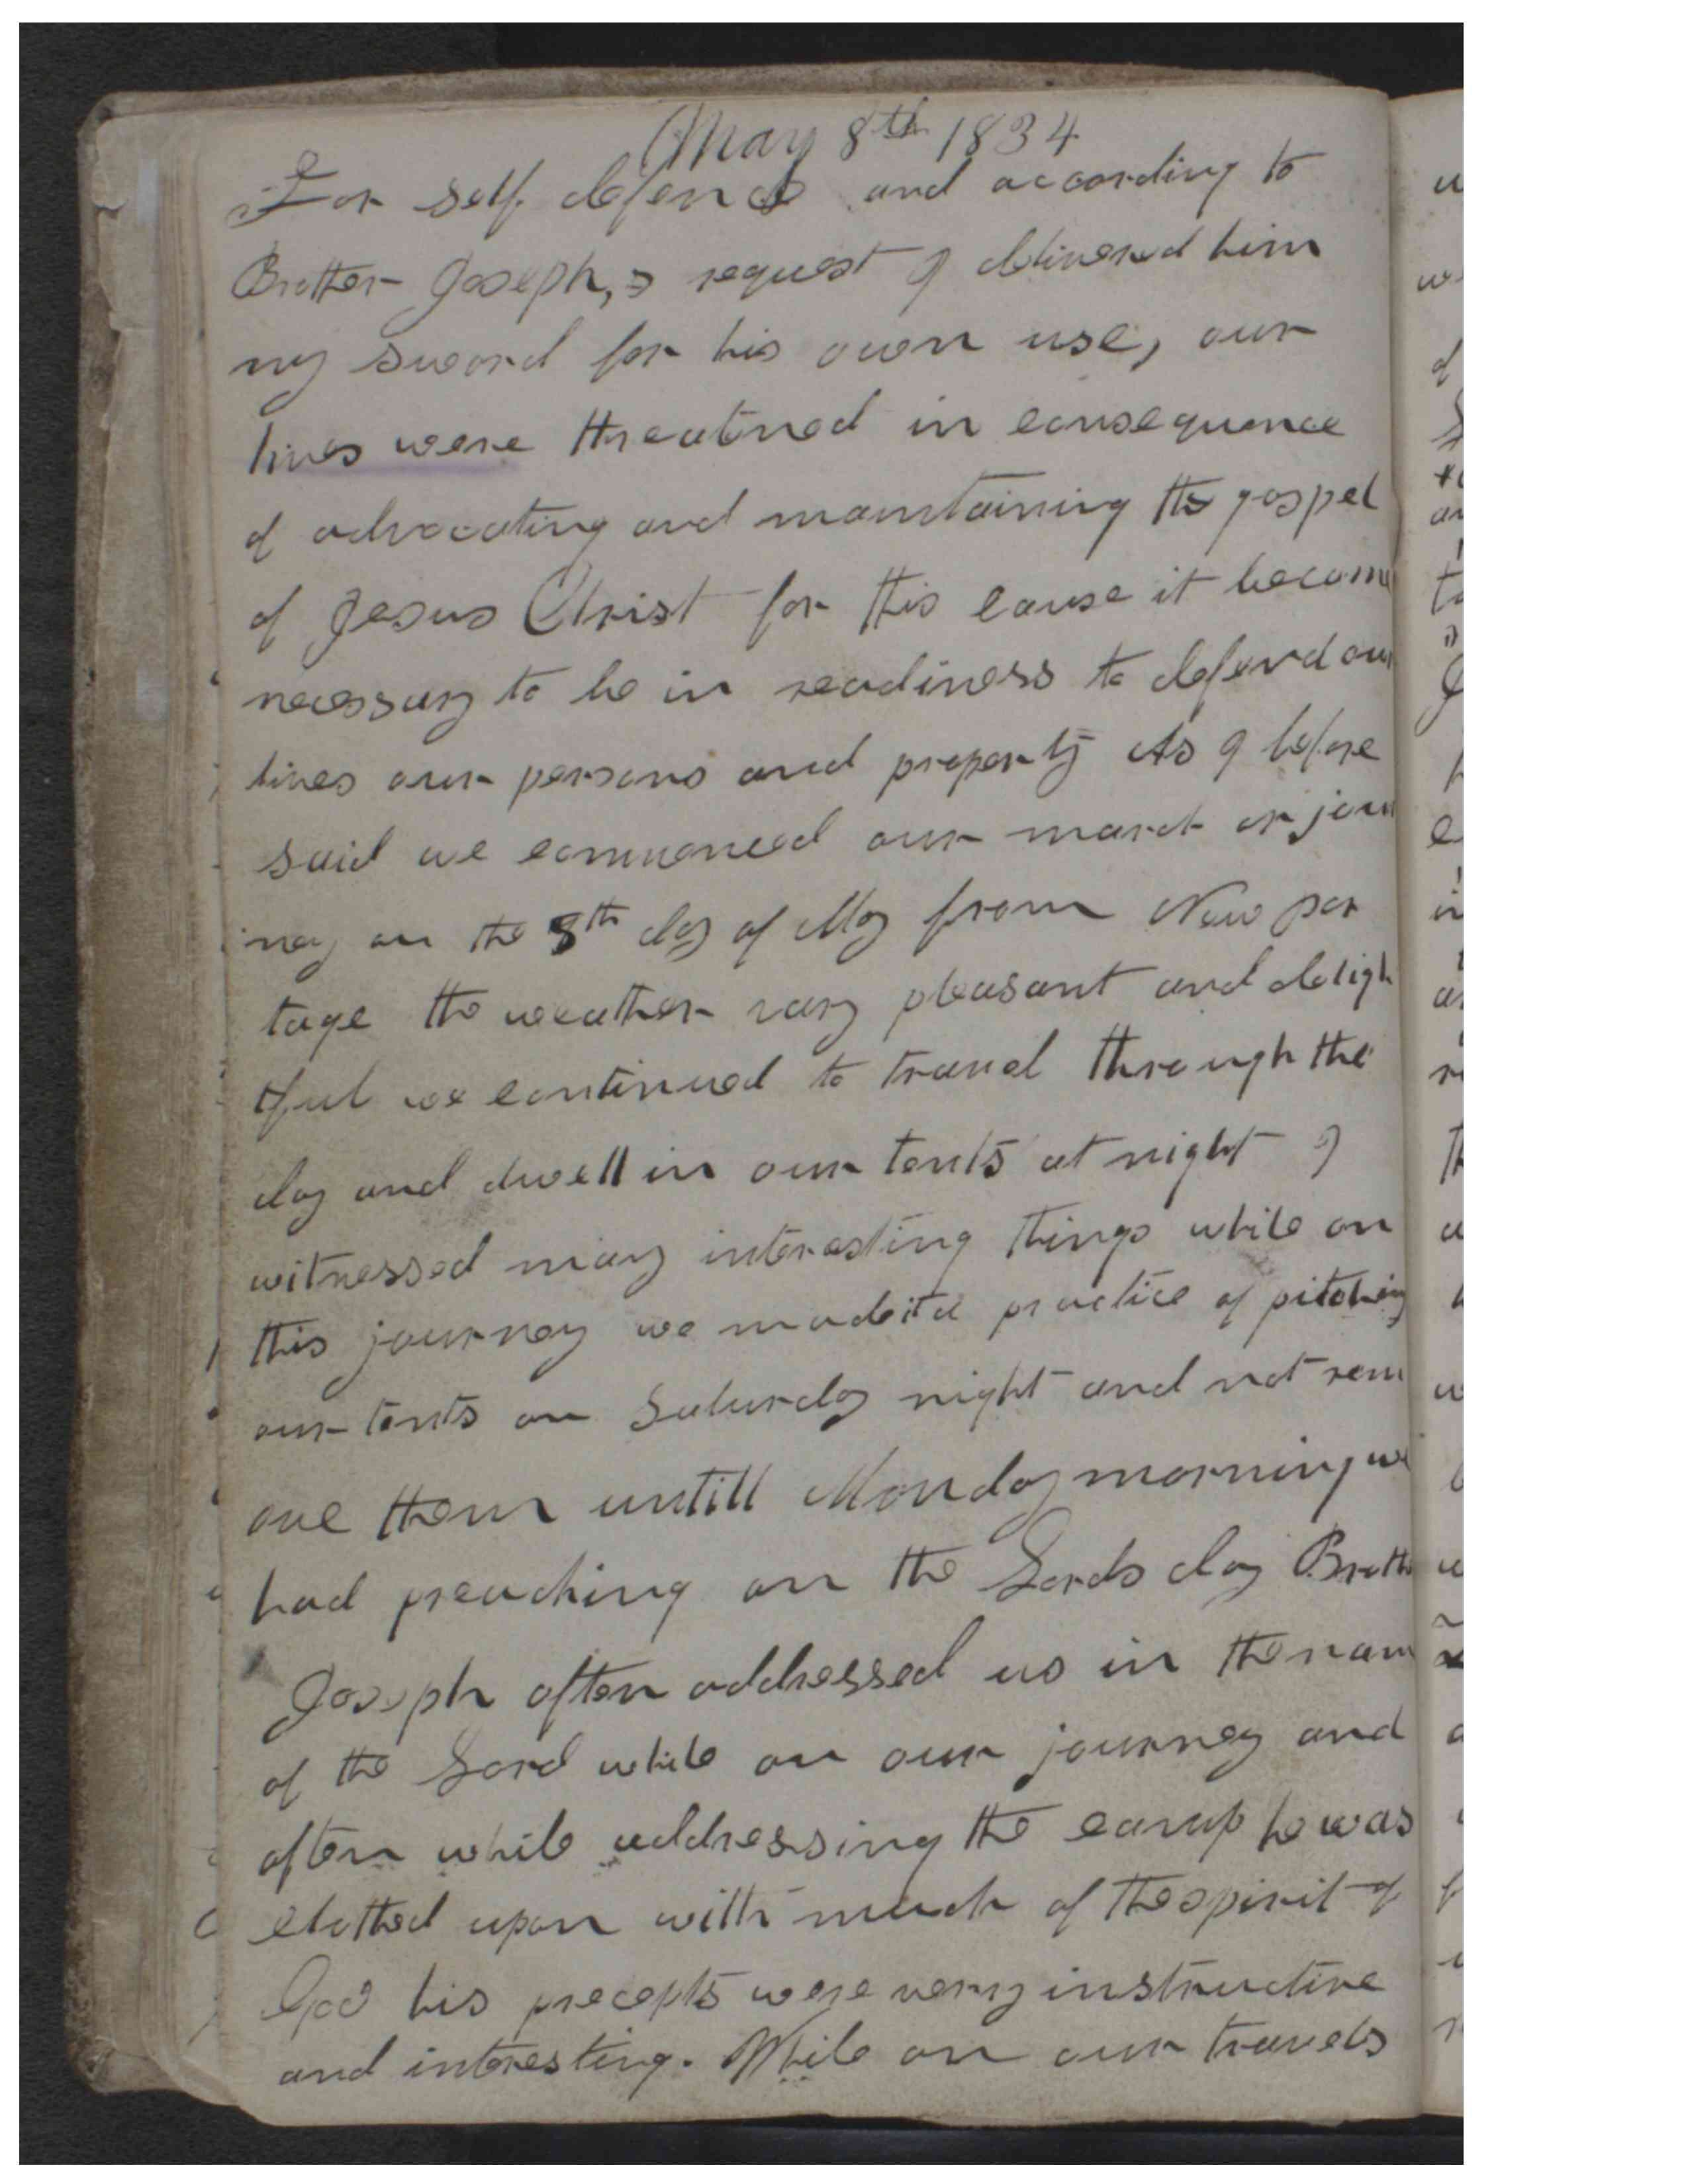 May 8th 1834
For self defence and according to
Brother Joseph,s request I delivered him
my sword for his own use, our
lives were threatened in consequence
of advocating and maintaining the gospel
of Jesus Christ for this cause it become
necessary to be in readiness to defend our
lives our persons and property As I before
said we commenced our march or jour
ney on the 8th day of May from New por
tage the weather very pleasant and deligh
tful we continued to travel through the
day and dwell in our tents at night I
witnessed many interesting things while on
this journey we made it a practice of pitching
our tents on Saturday night and not rem
ove them untill Monday morning we
had preaching on the Lords day Brother
Joseph often addressed us in the name
of the Lord while on our journey and
often while addressing the camp he was
clothed upon with much of the spirit of
God his precepts were very instructive
and interesting. While on our travels